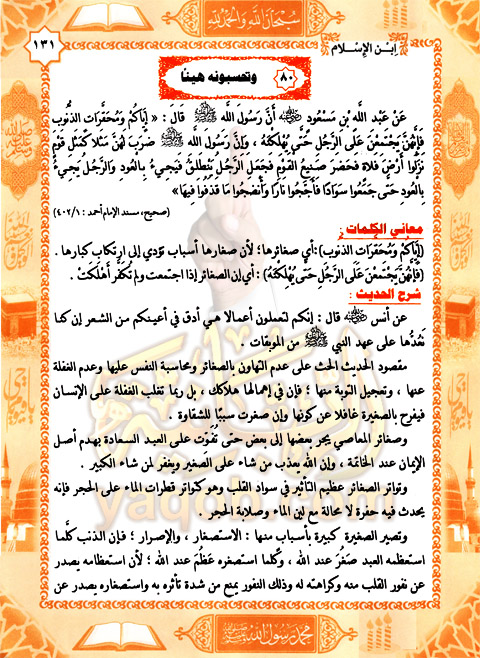 سبحان الله والحمد لله
ابن الإسلام
١٣١
٨٠ وتحسبونه هينا
عَنْ عَبْدِ اللَّهِ بْنِ مَسْعُودٍ ﷺ أَنَّ رَسُولَ اللَّهِ ﷺ قَالَ : « إِيَّاكُمْ وَمُحَقَّرَاتِ الذُّنُوبِ
فَإِنَّهُنَّ يَجْتَمِعْنَ عَلَى الرَّجُلِ حَتَّى يُهْلِكْنَهُ ، وَإِنَّ رَسُولَ اللَّهِ ﷺ ضَرَبَ لَهُنَّ مَثَلًا كَمَثَلِ قَوْمٍ
نَزَلُوا أَرْضَ فَلَاةٍ فَحَضَرَ صَنِيعُ الْقَوْمِ فَجَعَلَ الرَّجُلُ يَنْطَلِقُ فَيَجِيءُ بِالْعُودِ وَالرَّجُلُ يَجِيءُ
بِالْعُودِ حَتَّى جَمَعُوا سَوَادًا فَأَجَّجُوا نَارًا وَأَنْضَجُوا مَا قَذَفُوا فِيهَا»
(صحيح، مسند الإمام أحمد : ٤٠٢/١)
معاني الكلمات :
(إِيَّاكُمْ وَمُحَقَّرَاتِ الذنوب):أي صغائرها؛ لأن صغارها أسباب تؤدي إلى ارتكاب كبارها .
(فَإِنَّهُنَّ يَجْتَمِعْنَ عَلَى الرَّجُلِ حَتَّى يُهْلِكْنَهُ) : أي إن الصغائر إذا اجتمعت ولم تُكَفَّر أَهْلَكَتْ .
شرح الحديث :
عن أنس قال : إنكم لتعملون أعمالا هي أدق في أعينكم من الشعر إن كنا
نَعُدُّها على عهد النبي ﷺ من الموبقات .
مقصود الحديث الحث على عدم التهاون بالصغائر ومحاسبة النفس عليها وعدم الغفلة
عنها ، وتعجيل التوبة منها ؛ فإن في إهمالها هلاكك ، بل ربما تغلب الغفلة على الإنسان
فيفرح بالصغيرة غافلا عن كونها وإن صغرت سببًا للشقاوة .
وصغائر المعاصي يجر بعضها إلى بعض حتى تُفَوِّت على العبد السعادة بهدم أصل
الإيمان عند الخاتمة ، وإن الله يعذب من شاء على الصغير ويغفر لمن شاء الكبير .
وتواتر الصغائر عظيم التأثير في سواد القلب وهو كتواتر قطرات الماء على الحجر فإنه
يحدث فيه حفرة لا محالة مع لين الماء وصلابة الحجر .
وتصير الصغيرة كبيرة بأسباب منها : الاستصغار ، والإصرار ؛ فإن الذنب كلَّما
استعظمه العبد صَغُرَ عند الله ، وكلَّما استصغره عَظُمَ عند الله ؛ لأن استعظامه يصدر
عن نفور القلب منه وكراهته له وذلك النفور يمنع من شدة تأثره به واستصغاره يصدر عن
محمد رسول الله